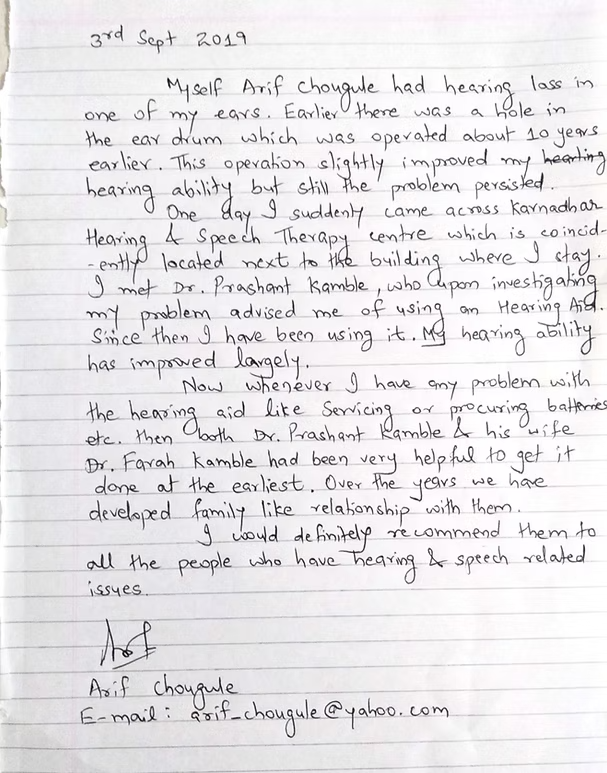 3rd Sept 2019
Myself Arif Chougule had hearing loss in
one of my ears. Earlier there was a hole in
the ear drum which was operated about 10 years
earlier. This operation slightly improved my hearting
hearing ability but still the problem persisted.
One day I suddenly came across Karnadhar
Hearing & Speech Therapy centre which is coincid-
-ently located next to the building where I stay.
I met Dr. Prashant Kamble, who upon investigating
my problem advised me of using an Hearing Aid.
Since then I have been using it. My hearing ability
has improved largely.
Now whenever I have any problem with
the hearing aid like Servicing or procuring batteries
etc. then both Dr. Prashant Kamble & his wife
Dr. Farah Kamble had been very helpful to get it
done at the earliest. Over the years we have
developed family like relationship with them.
I would definitely recommend them to
all the people who have hearing & speech related
issues.
Arif Chougule
E-mail: arif_chougule@yahoo.com